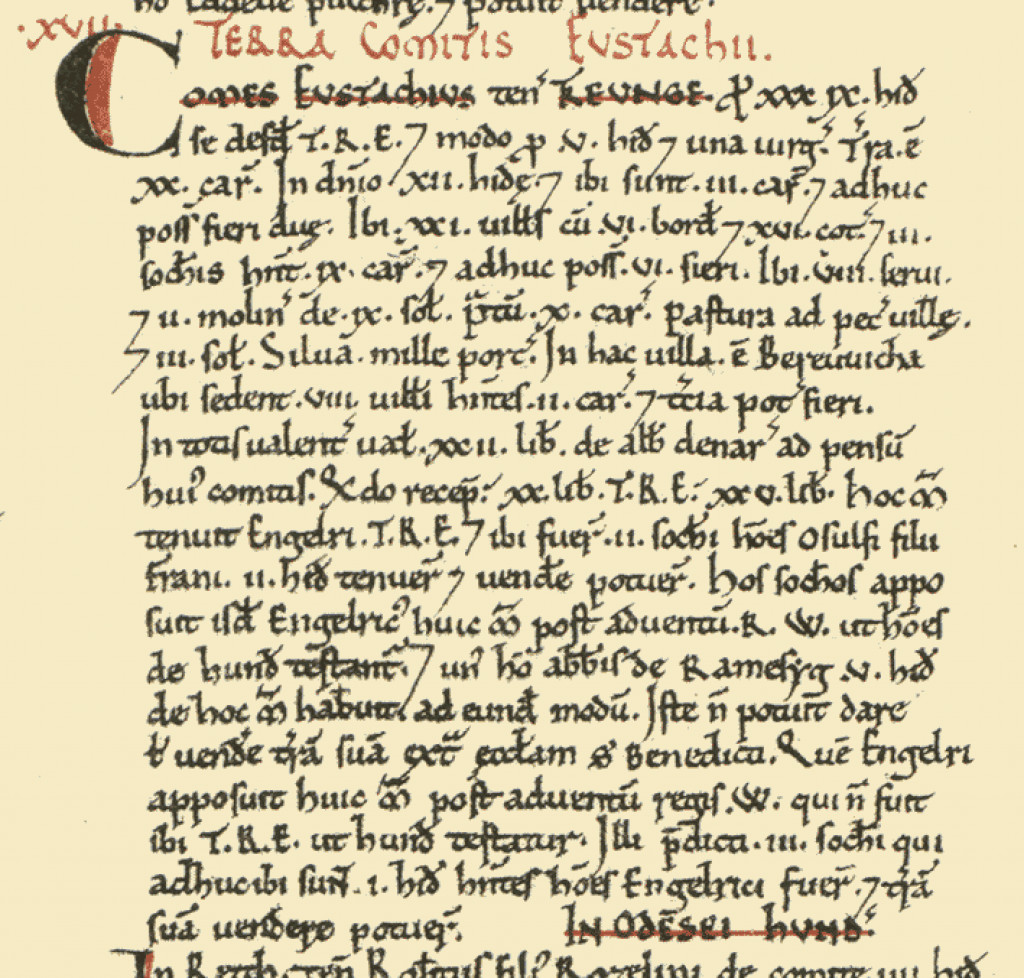 no Tædeue pulchre. ⁊ potuit uendere.
.XVII. TERRA COMITIS EUSTACHII.
COMES EUSTACHIUS ten' TREUNGE. ꝓ xxx ix. hiđ
se defđ T.R.E. ⁊ modo ꝓ v. hiđ ⁊ una uirg̃. T̃ra. ē
xx. car̃. In dn̄io .xii. hidę. ⁊ ibi sunt .iii. car̃. ⁊ adhuc
poss̄ fieri duę. Ibi .xxi. uiłłs cū .vi. borđ ⁊ xvi. cot'. ⁊ iii.
soch̄is hn̄t .ix. car̃. ⁊ adhuc poss̄ .vi. fieri. Ibi .viii. serui.
⁊ ii. molin' de .ix. soł. p̃tū .x. car'. pastura ad pec' uillę.
⁊ iii. soł. Siluā. mille porc'. In hac uilla. ē Bereuuicha
ubi sedent .viii. uiłłi hn̄tes .ii. car'. ⁊ t̄cia pot' fieri.
In totis ualent' uał. xxii. liƀ. de alƀ denar' ad pensū
hui' comitis. Q̃do recep̃: xx. liƀ. T.R.E: xxv. liƀ. hoc m̃
tenuit Engelri. T.R.E. ⁊ ibi fuer̃ .ii. soch̄i hōēs Osulfi filii
frani. ii. hiđ tenuer̃ ⁊ uenđe potuer̃. Hos soch̄os appo
suit isđ Engelric' huic m̃ post aduentū .R. W. ut hōēs
de hunđ testant'. ⁊ un' hō abƀis de Ramesyg v. hiđ
de hoc m̃ haƀuit. ad eunđ modū. Iste n̄ potuit dare
ł uenđe t̃rā suā ext̃ ecclam S' Benedicti. Quē Engelri
apposuit huic m̃ post aduentū regis .W. qui n̄ fuit
ibi T.R.E. ut hunđ testatur. Illi p̄dicti .iii. soch̄i qui
adhuc ibi sun̄t .i. hiđ hn̄tes hōēs Engelrici fuer̃. ⁊ t̃rā
suā uendere potuer̃. IN ODESEI HUND'
In Retth ten̄ Roƀtus fili' Rozelini de comite iiii. hiđ